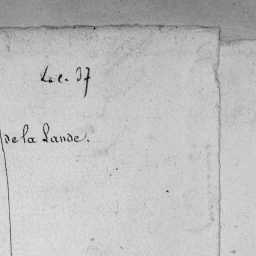 L.c. 37
de la Lande.